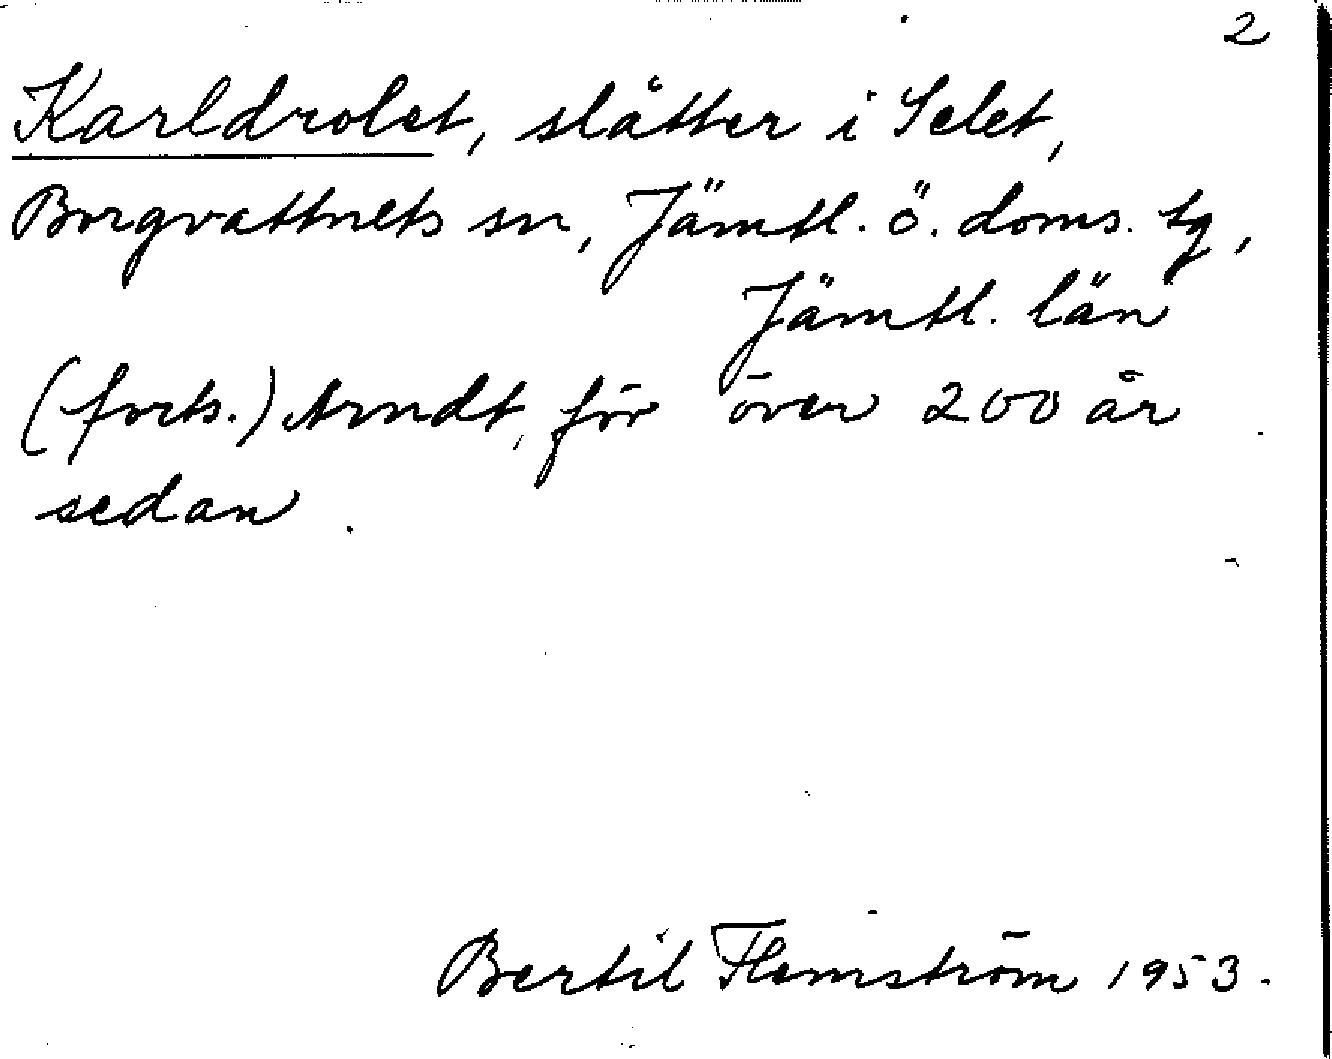 2
Karldrolet, slåtter i Selet,
Borgvattnets sn, Jämtl. ö. doms. tg,
Jämtl. län
(forts.) Arndt, för över 200 år
sedan.
Bertil Flemström 1953.